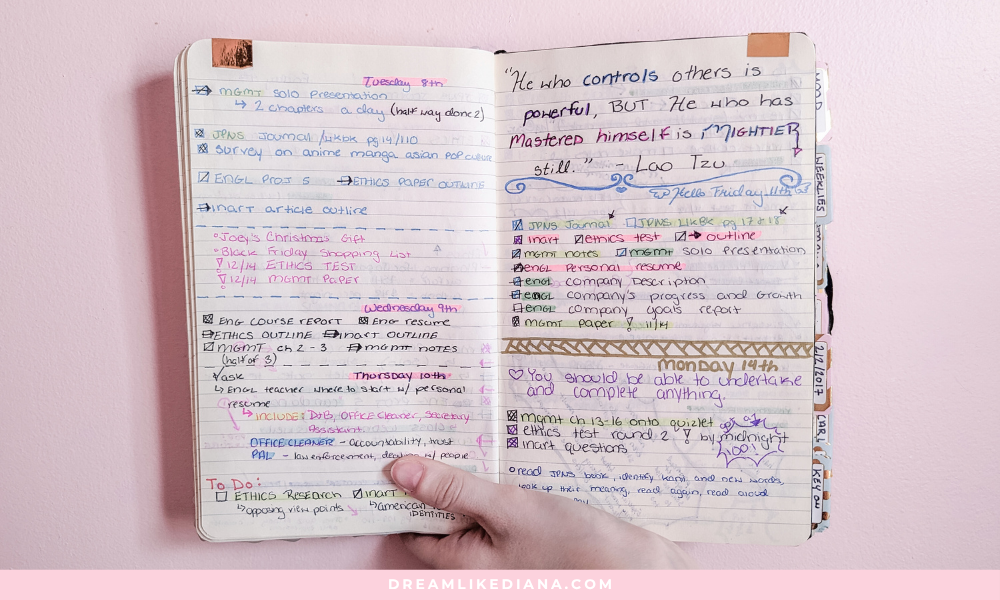 Tuesday 8th
MGMT Solo Presentation
↳ 2 chapters a day (half way done 2)
JPNS Journal /wkbk pg 14/110
Survey on anime manga asian pop culture
ENGL Proj 5 → ETHICS PAPER OUTLINE
inart article outline
Joey's Christmas Gift
Black Friday Shopping List
12/14 ETHICS TEST
12/14 MGMT PAPER
Wednesday 9th
ENG COURSE REPORT ENG resume
ETHICS OUTLINE inart OUTLINE
MGMT ch 2-3 MGMT NOTES
(half of 3)
Thursday 10th
ask
↳ ENGL teacher where to start w/ personal
resume
↳ INCLUDE: DJB, OFFICE Cleaner, Secretary
Assistant
OFFICE CLEANER - accountability, trust
PAL - law enforcement, w/ people
To Do:
ETHICS Research inart
↳ opposing view points ↳ american
IDENTITIES
"He who controls others is
powerful, BUT He who has
Mastered himself is MIGHTIER
still." - Lao Tzu
Hello Friday 11th
JPNS Journal JPNS WkBk pg 17 & 18
inart ethics test → outline
mgmt notes mgmt Solo Presentation
engl Personal resume
engl company Description
engl company's progress and Growth
engl company goals report
mgmt paper ! 11/14
monday 14th
♡ You should be able to undertake
and complete anything.
mgmt ch 13-16 onto quizlet
ethics test round 2 ! by midnight
inart questions
100!
read JPNS book, identify kanji and new words,
look up their meaning, read again, read aloud
WEEKLIES
2/2/2017
CAR.
KEY ON
DREAMLIKEDIANA.COM